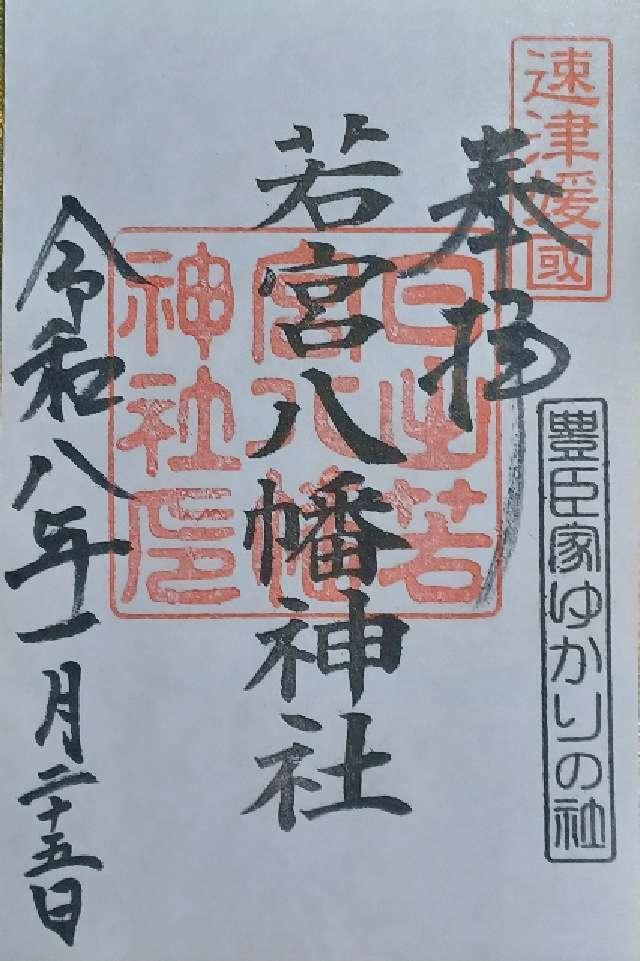 速津媛國
奉拝
豊臣家ゆかりの社
若宮八幡神社
日出若
宮八幡
神社印
令和八年一月二十五日